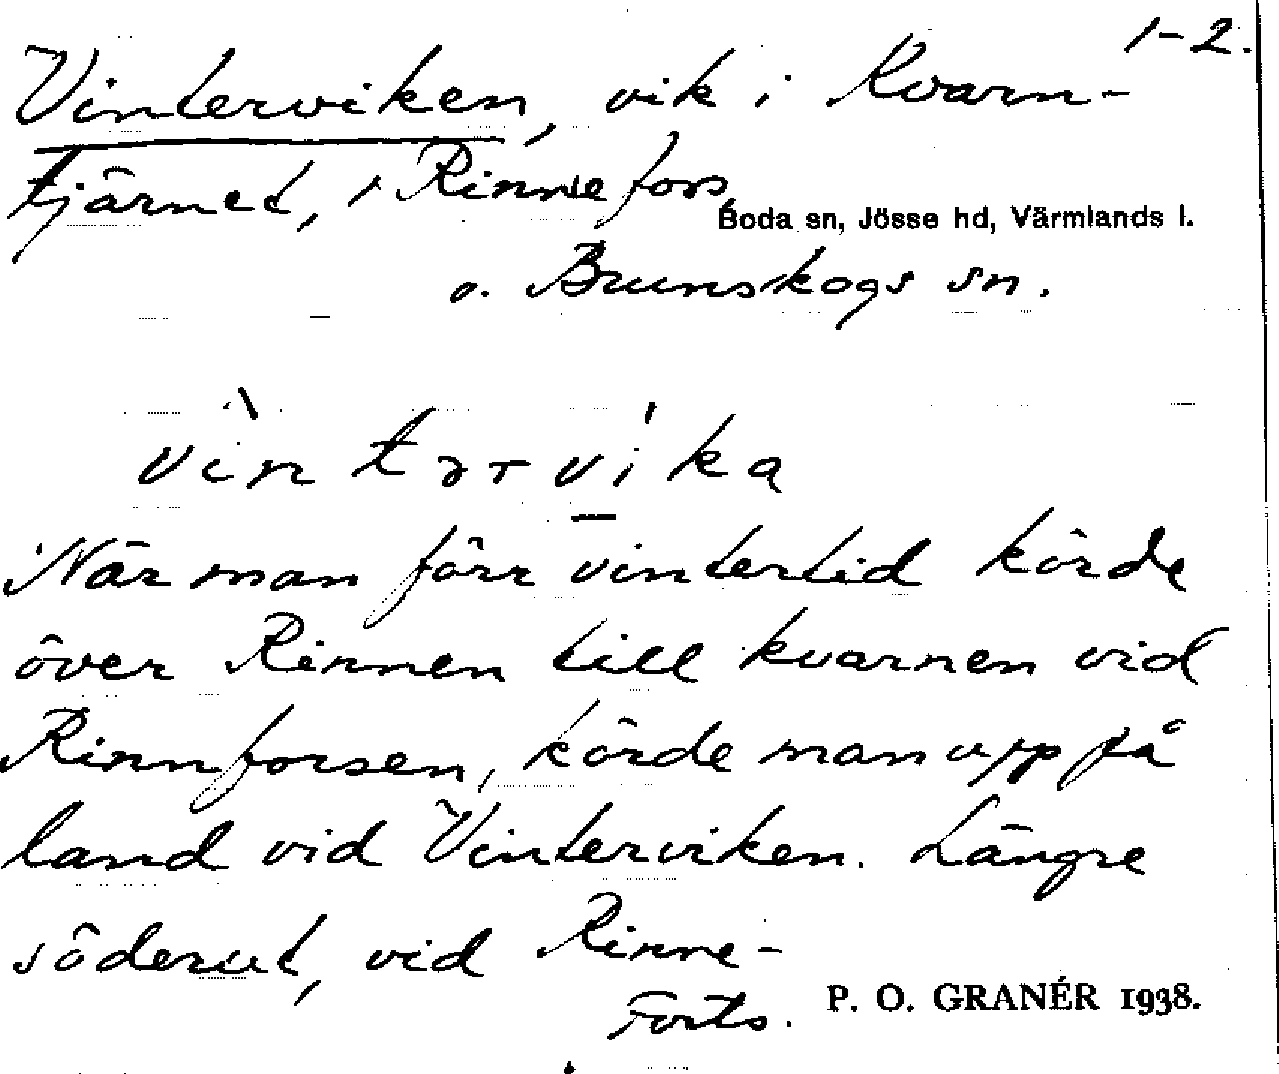 1-2.
Vinterviken, vik i Kvarn-
tjärnet, i Rinnefors,
Boda sn, Jösse hd, Värmlands l.
o. Brunskogs sn.
vìntərvi̠ka
När man förr vintertid körde
över Rinnen till kvarnen vid
Rinnforsen, körde man upp på
land vid Vinterviken. Längre
söderut, vid Rinne-
Forts.
P. O. GRANÉR 1938.